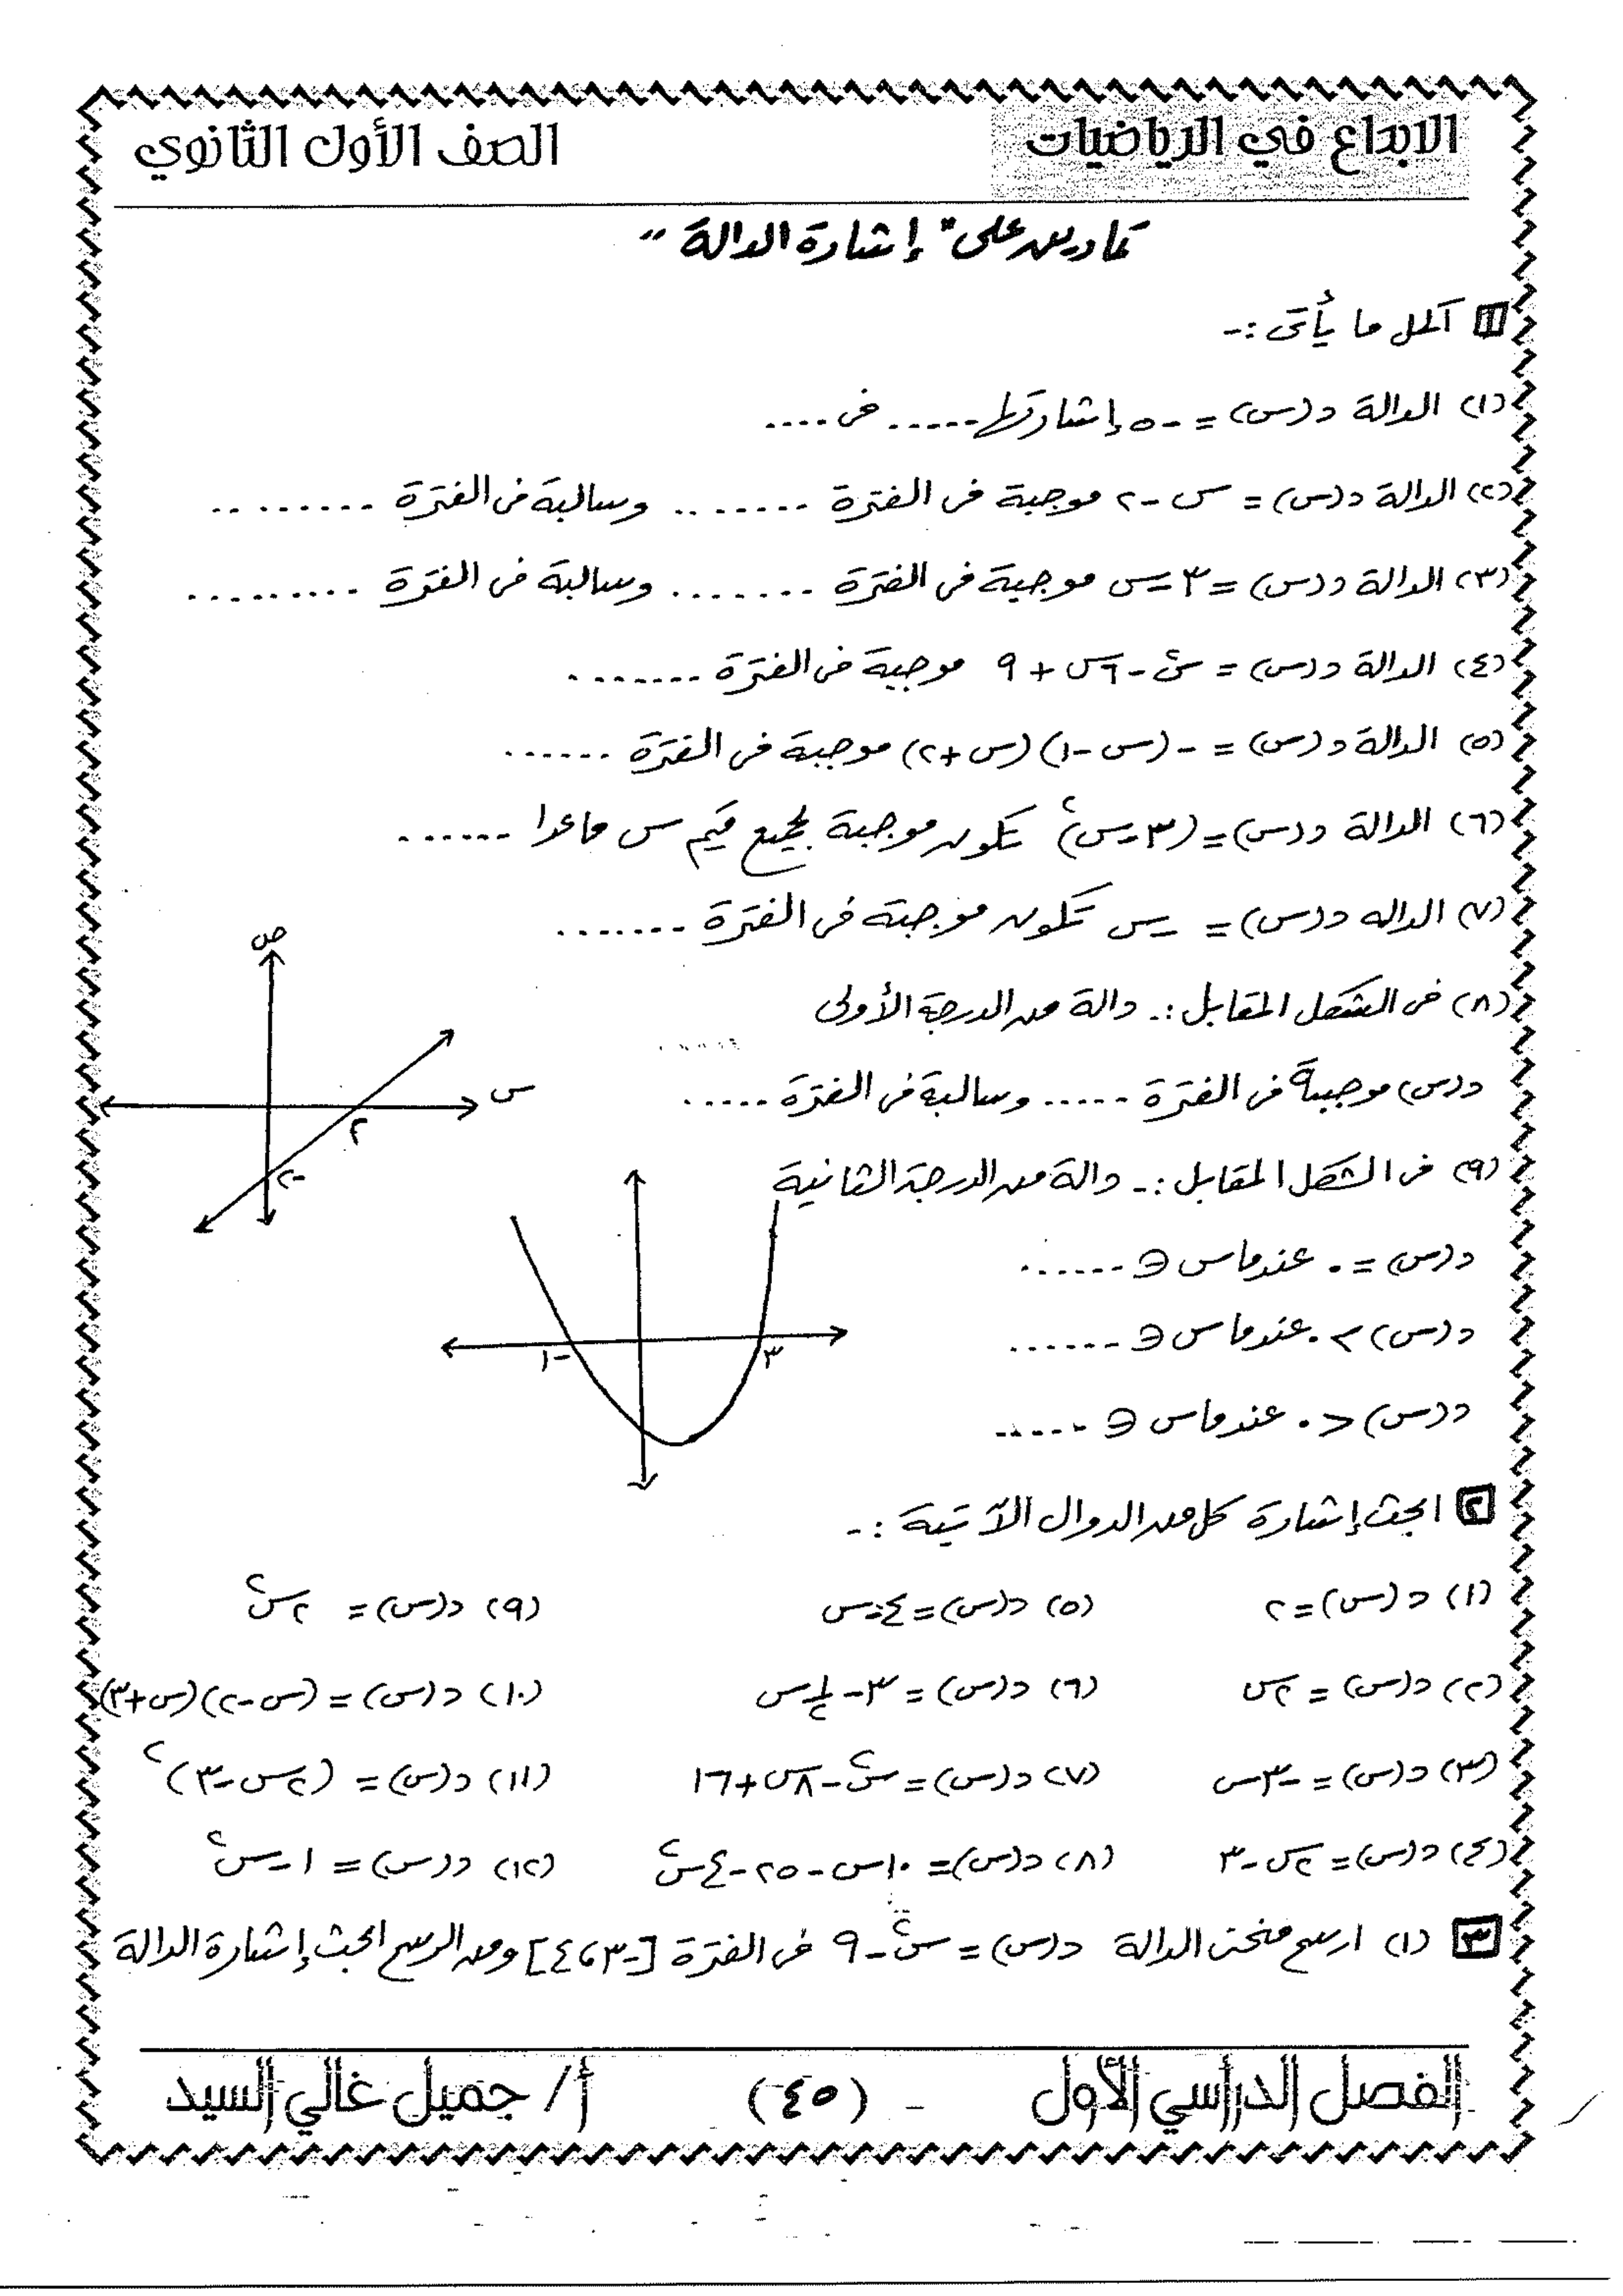 الابداع في الرياضيات
الصف الأول الثانوي
تمارين على " إشارة الدالة "
١ أكمل ما يأتى :-
(١) الدالة د(س) = -٥ إشارتها ...... فى ....
(٢) الدالة د(س) = س -٢ موجبة فى الفترة ........ وسالبة فى الفترة .........
(٣) الدالة د(س) = ٣ -س موجبة فى الفترة ........ وسالبة فى الفترة .........
(٤) الدالة د(س) = س٢ - ٦س + ٩ موجبة فى الفترة .......
(٥) الدالة د(س) = - (س -١) (س +٢) موجبة فى الفترة ......
(٦) الدالة د(س) = (٣ -س)٢ تكون موجبة لجميع قيم س ماعدا ......
(٧) الداله د(س) = -س تكون موجبة فى الفترة .......
(٨) فى الشكل المقابل :- دالة من الدرجة الأولى
د(س) موجبة فى الفترة ..... وسالبة فى الفترة .....
ص
س
٢
-٢
(٩) فى الشكل المقابل :- دالة من الدرجة الثانية
د(س) = ٠ عندما س ∋ ......
د(س) > ٠ عندما س ∋ ......
د(س) < ٠ عندما س ∋ ......
-١
٣
٢ ابحث إشارة كل من الدوال الآتية :-
(١) د(س) = ٢ (٥) د(س) = ٤ -س (٩) د(س) = ٢س٢
(٢) د(س) = ٢س (٦) د(س) = ٣ - ١/٢ س (١٠) د(س) = (س -٢) (س +٣)
(٣) د(س) = -٣س (٧) د(س) = س٢ - ٨س + ١٦ (١١) د(س) = (٢س -٣)٢
(٤) د(س) = ٢س -٣ (٨) د(س) = ١٠س - ٢٥ - ٤س٢ (١٢) د(س) = ١ -س٢
٣ (١) ارسم منحنى الدالة د(س) = س٢ - ٩ فى الفترة [-٣، ٤] ومن الرسم ابحث إشارة الدالة
الفصل الدراسي الأول - (٤٥) أ/ جميل غالي السيد